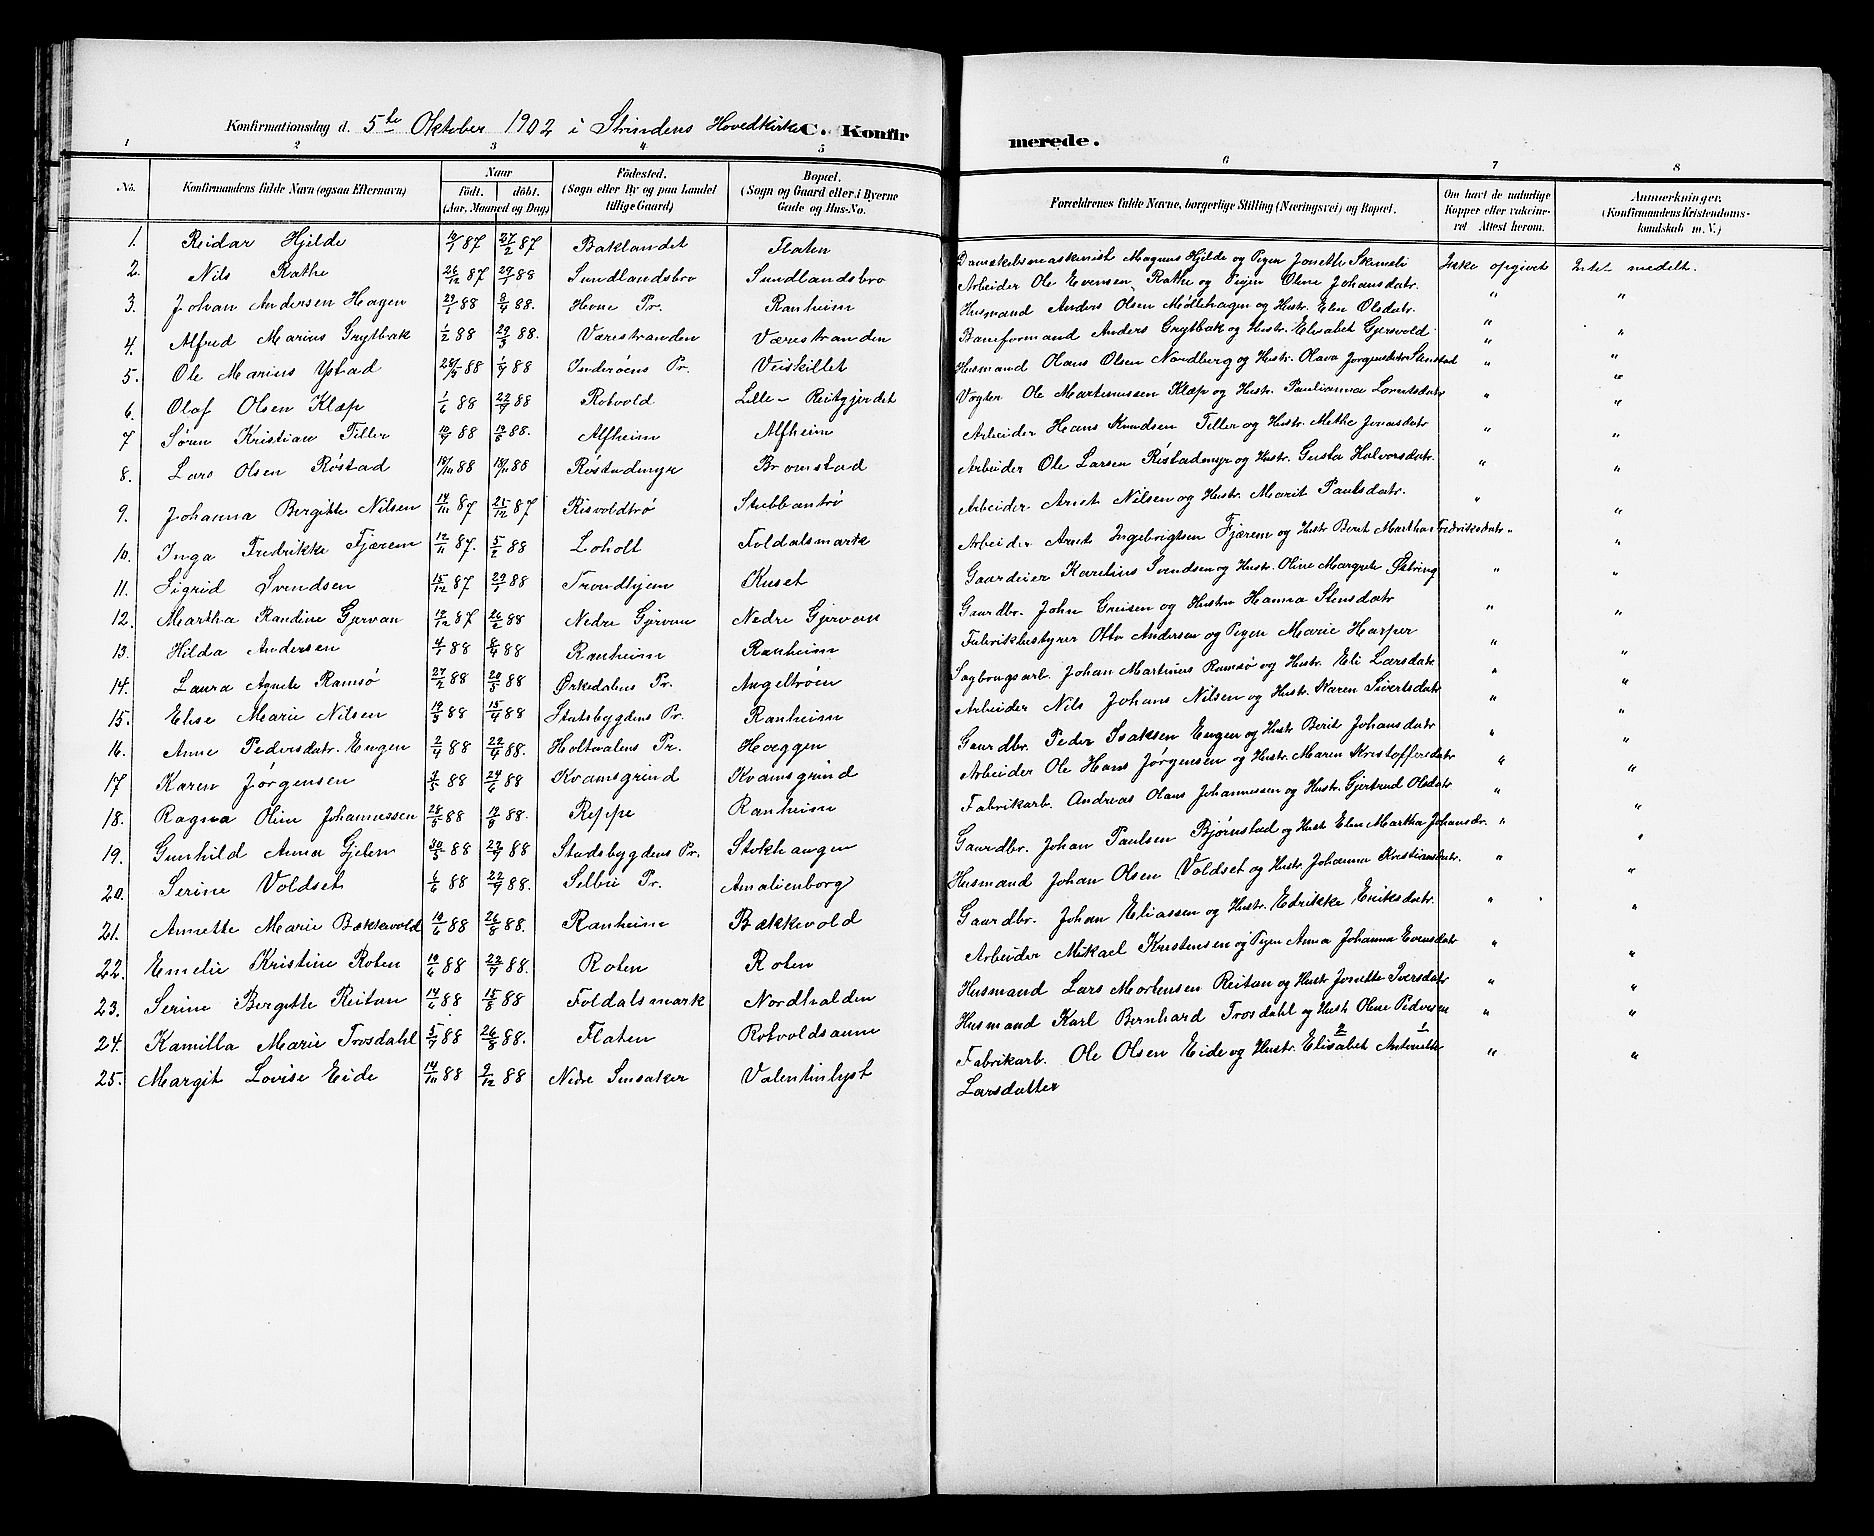 Konfirmationsdag d. 5te Oktober 1902 i Strindens Hovedkirke C. Konfirmerede.
1 2 3 4 5 6 7 8
No. Konfirmandens fulde Navn (ogsaa Efternavn) Naar født. døbt. (Aar, Maaned og Dag) Fødested. (Sogn eller By og paa Landet tillige Gaard) Bopæl. (Sogn og Gaard eller i Byerne Gade og Hus-No. Forældrenes fulde Navne, borgerlige Stilling (Næringsvei) og Bopæl. Om havt de naturlige Kopper eller vakcineret Attest herom. Anmerkninger. (Konfirmandens Kristendomskundskab m. V.)
1. Reidar Hjelde 87 27/2 87 Baklandet Flaten Dampskibsmaskinist Magnus Hjelde og Pigen Jonette Ikke opgivet Intet meddelt.
2. Nils Rathe 26/12 87 29/1 88 Sundlandsbro Sundlandsbro Arbeider Ole Evensen Rathe og Pigen Oline Johansdatr. " "
3. Johan Andersen Hagen 29/1 88 8/4 88. Hevne Pr. Ranheim Husmand Anders Olsen Møllehagen og Hustr. Elen Olsdatr. " "
4. Alfred Marius Grytbak 1/2 88 29/3 88. Værestranden Værestranden Baneformand Anders Grytbak og Hustr. Elisabet Gjersvold " "
5. Ole Marius Ystad 28/4 88 1/4 88 Inderøens Pr. Veiskillet Husmand Olaus Olsen Nordberg og Hustr. Olava Jørgensdatr " "
6. Olaf Olsen Klæp 1/6 88 22/9 88 Rotvold Lille-Reitgjerdet Vogter Ole Martinussen Klæp og Hustr. Paulianna Lorentsdatr " "
7 Søren Kristian Tiller 10/9 88 19/8 88. Alfheim Alfheim Arbeider Hans Knudsen Tiller og Hustr. Methe Jonasdatr " "
8. Lars Olsen Røstad 18/10 88 18/11 88 Røstadmyr Bromstad Arbeider Ole Larsen Røstadmyr og Hustr. Gusta Halvorsdatr. " "
9. Johanna Bergitte Nilsen 14/10 87 25/12 87 Risvoldtrø Stubbantrø Arbeider Arnt Nilsen og Hustr. Marit Paulsdatr. " "
10. Inga Fredrikke Fjærem 12/11 87. 5/2 88 Loholt Foldalsmark Arbeider Arnt Ingebrigtsen Fjærem og Hustr Berit Martha Fredriksdatr " "
11. Sigrid Svendsen 15/12 87 29/1 88 Trondhjem Kuset Gaardeier Karelius Svendsen og Hustr. Oline Margrete " "
12. Martha Randine Gjervan 19/12 87 26/2 88 Nedre Gjervan Nedre Gjervan Gaardbr. John og Hustru Hanna Stensdatr " "
13. Hilda Andersen 4/1 88 8/4 88 Ranheim Ranheim Fabrikbestyrer Otto Andersen og Pigen Marie Harper " "
14. Laura Agnete Ramsø 27/2 88 20/5 88 Ørkedalens Pr. Angeltrøen Sagbrugsarb. Johan Martinus Ramsø og Hustr. Eli Larsdatr " "
15. Elise Marie Nilsen 19/3 88 15/4 88 Statsbygdens Pr. Ranheim Arbeider Nils Johans Nilsen og Hustr. Karen Sivertsdatr " "
16. Anne Pedersdatr. Engen 2/4 88 22/4 88. Holtaalens Pr. Hoeggen Gaardbr. Peder Isaksen Engen og Hustr Berit Johansdatr " "
17 Karen Jørgensen 3/5 88 24/6 88 Kvamsgrind Kvamsgrind Arbeider Ole Hans Jørgensen og Hustr. Maren Kristoffersdatr " "
18. Ragna Oline Johannessen 28/5 88 19/8 88. Reppe Ranheim Fabrikarb. Andreas Olaus Johannessen og Hustr. Gjertrud Olsdatr " "
19. Gunhild Anna Gjelen 30/5 88 29/7 88 Stadsbygdens Pr. Stokhaugen Gaardbr. Johan Paulsen Bjørnstad og Hustr Elen Martha Johansdr. " "
20. Serine Voldset 6/6 88 22/7 88. Selbu Pr. Amalienborg Husmand Johan Olsen Voldset og Hustr. Johanna Kristiansdatr. " "
21. Annette Marie Bækkevold 10/6 88 26/8 88. Ranheim Bækkevold Gaardbr. Johan Eliassen og Hustr. Edrikke Eriksdatr. " "
22. Emelie Kristine Roten 10/6 88 29/7 88. Roten Roten Arbeider Mikael Kristensen og Pigen Anna Johanna Evensdatr " "
23. Serine Bergitte Reitan 14/6 88 15/8 88 Foldalsmark Nordhalden Husmand Lars Mortensen Reitan og Hustr Jonette Iversdatr " "
24. Kamilla Marie Trosdahl 5/7 88 26/8 88. Flaten Rotvoldsaune Husmand Karl Bernhard Trosdahl og Hustr Oline Pedersen " "
25. Margit Lovise Eide 14/10 88 9/12 88 Nedre Smsaker Valentinlyst Fabrikarb. Ole Olsen Eide og Hustr. Elisabet 2 Antonette 1 " "
Larsdatter